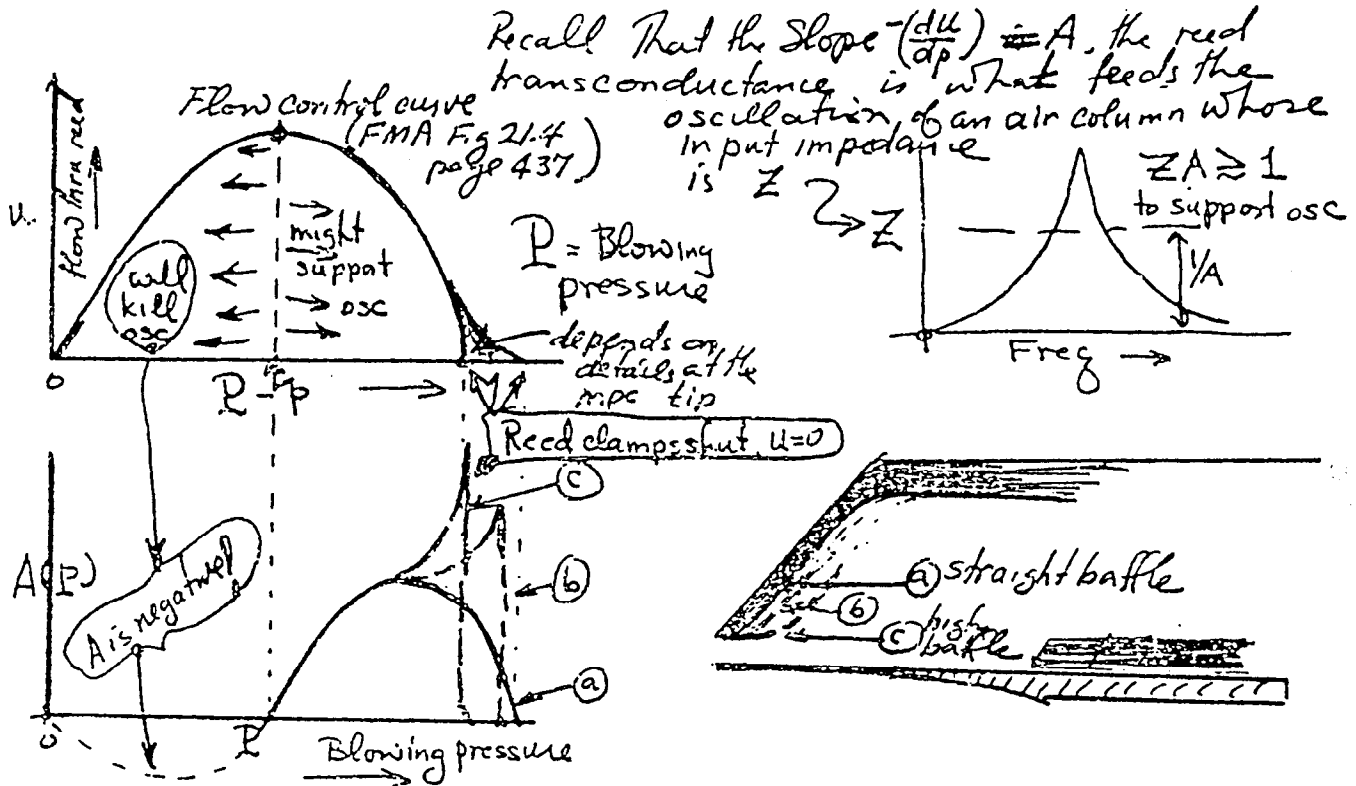 Recall That the Slope -(du/dp) = A, the reed
transconductance is what feeds the
oscillation of an air column whose
input impedance
is Z
Z
ZA ≳ 1
to support osc
1/A
Freq
Flow control curve
(FMA Fig 21.4
page 437)
Flow thru reed
u
will
kill
osc
might
support
osc
P = Blowing
pressure
depends on
details at the
mpc tip
0
P - p
Reed clamps shut, u=0
c
b
a
A(P)
A is negative
0
P
Blowing pressure
a straight baffle
b
c high
baffle